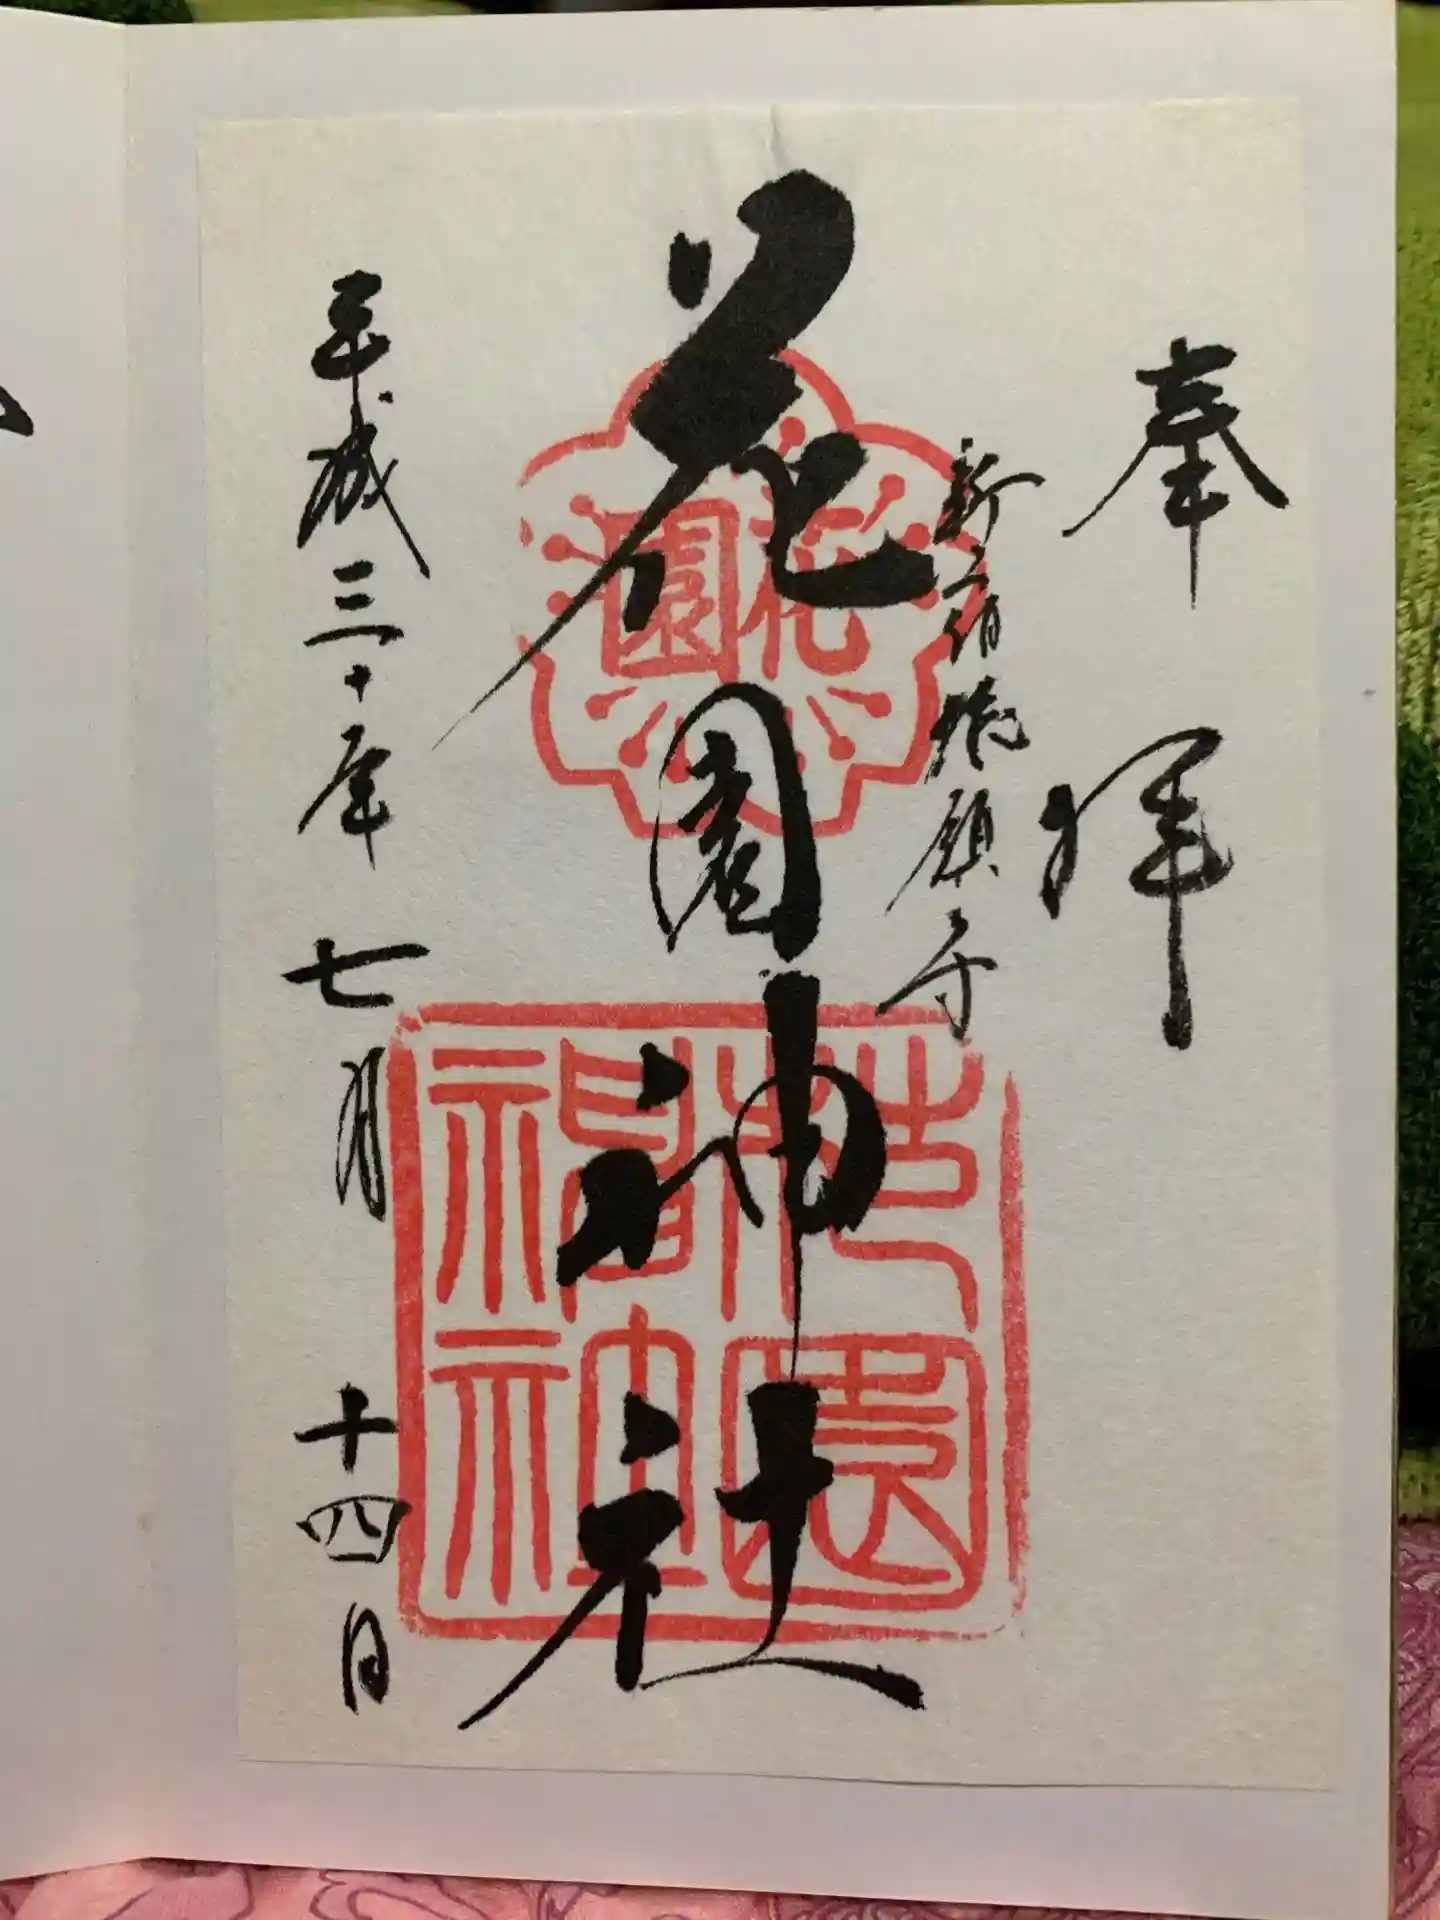 奉拝
新宿総鎮守
花園神社
花園
花園神社
平成三十年七月十四日